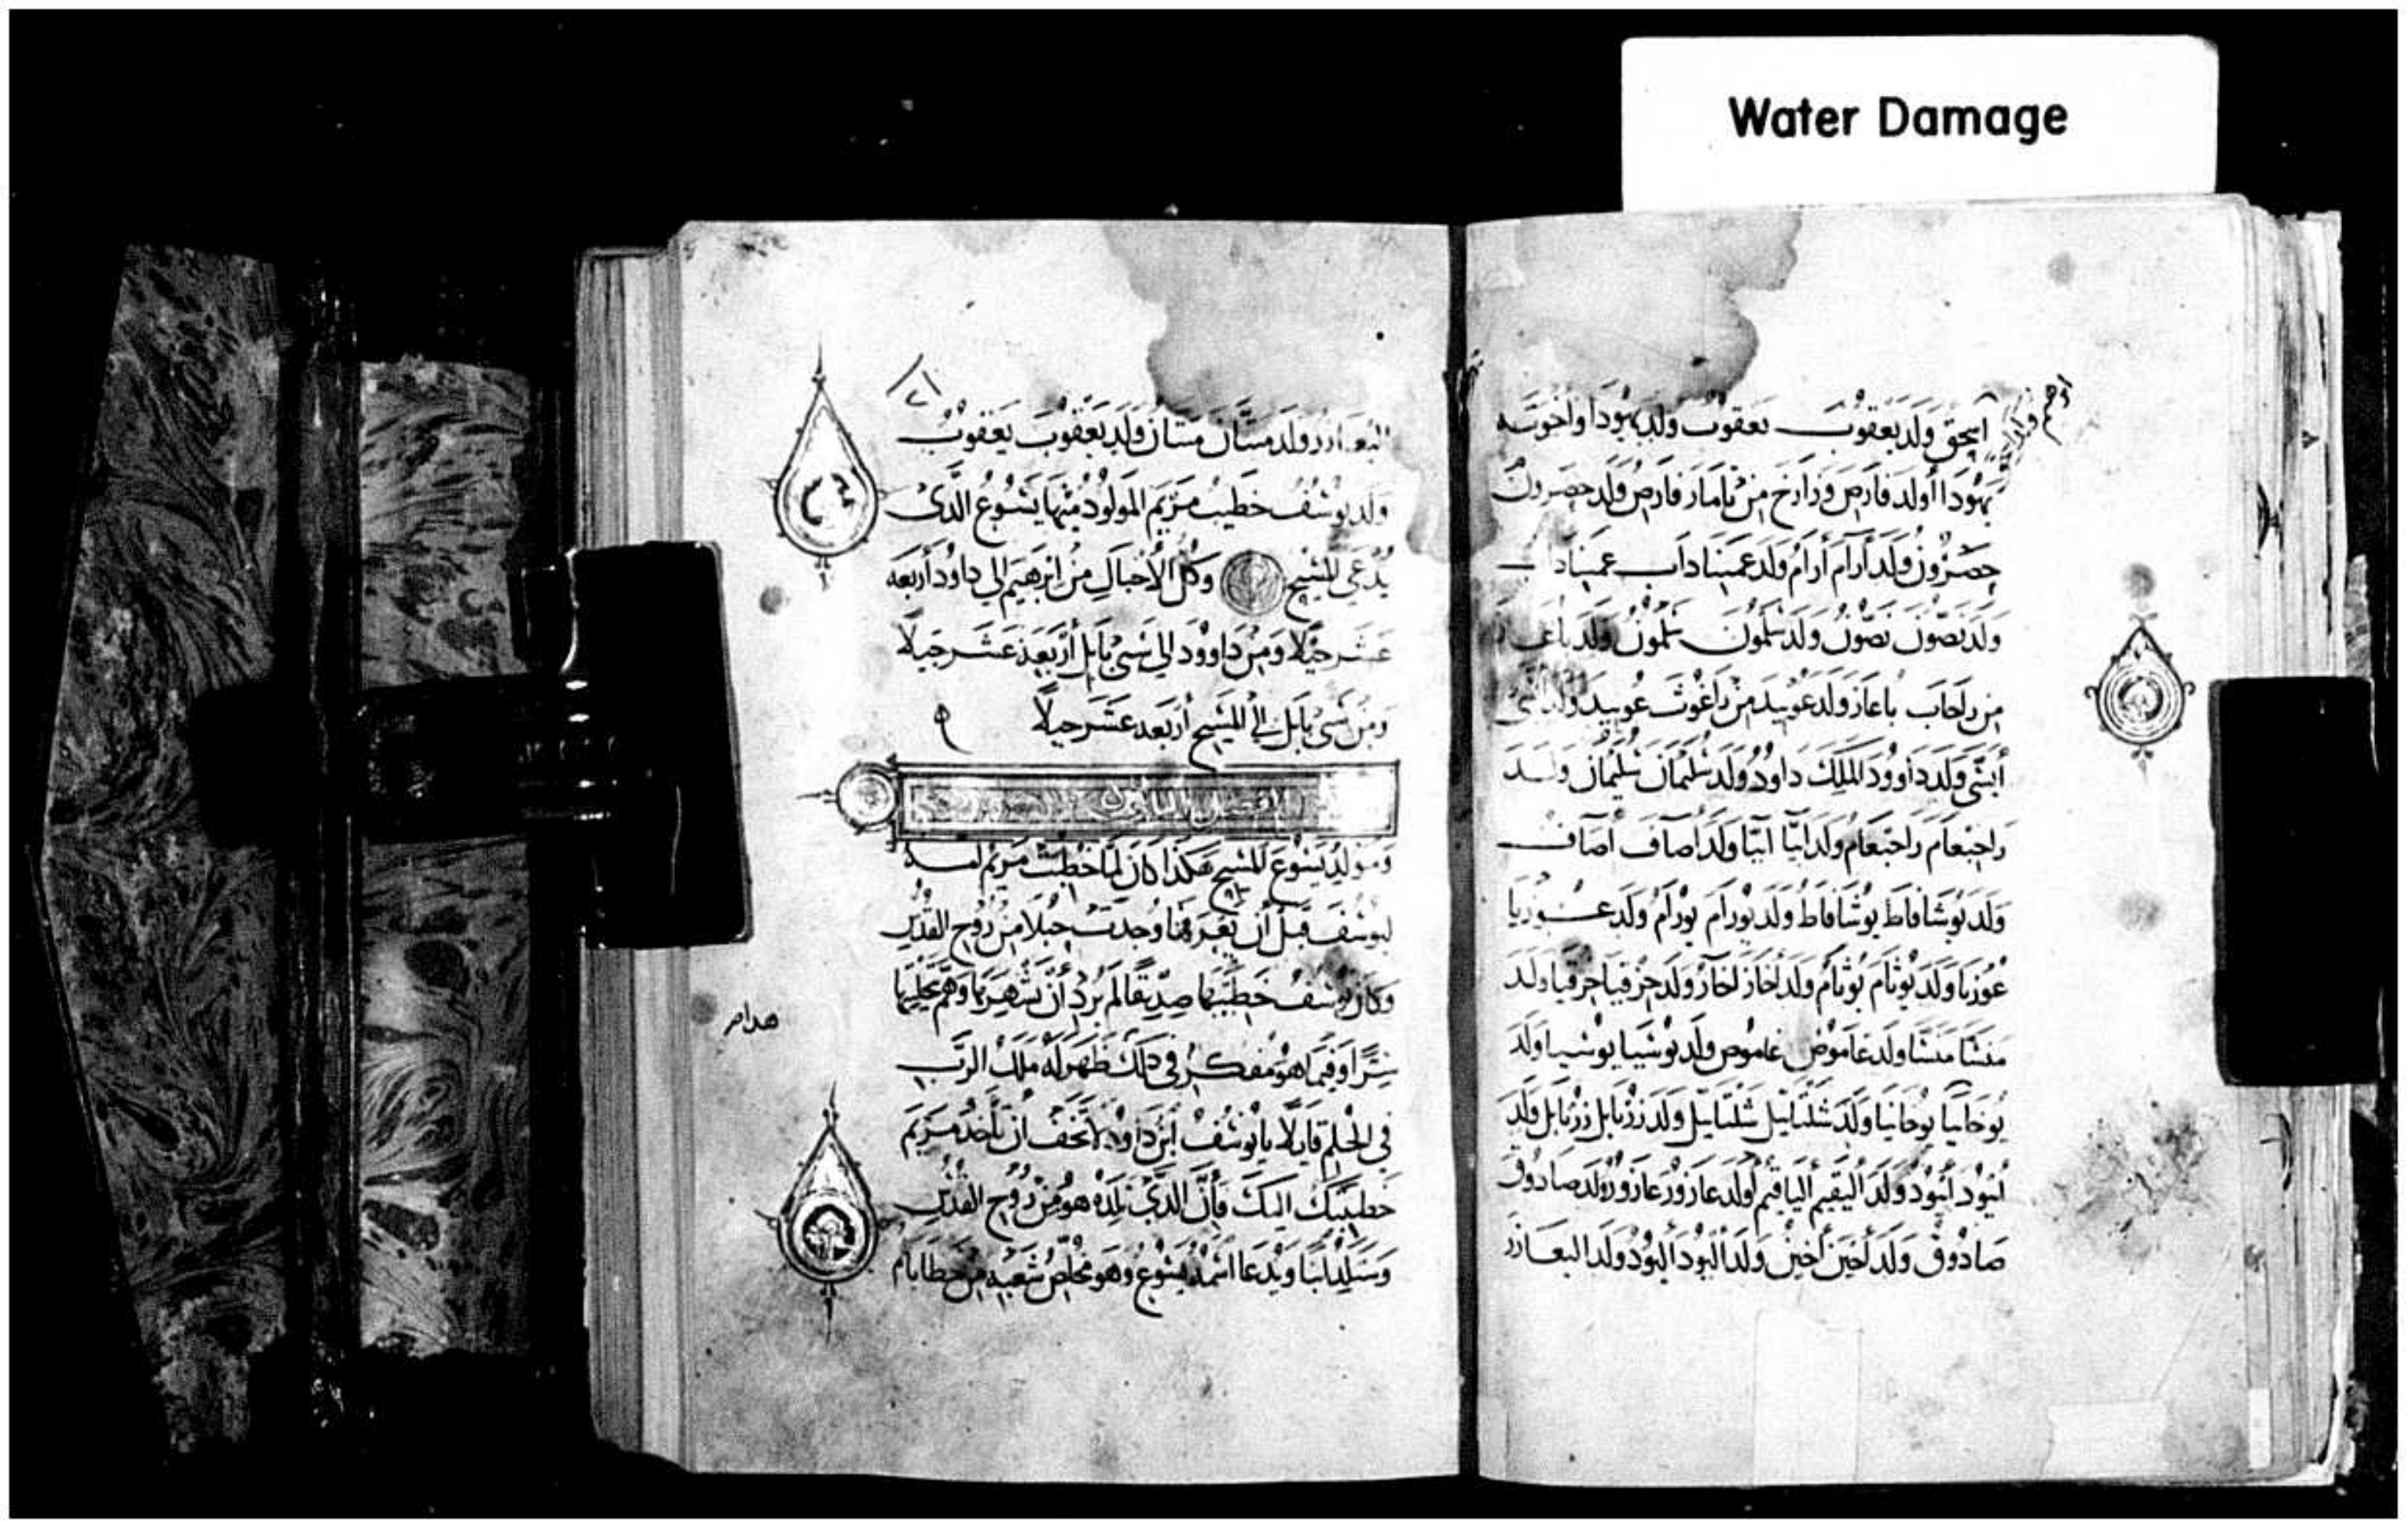 Water Damage
اسحق ولد يعقوب يعقوب ولد يهودا واخوته
يهودا أولد فارص وزارح من تامار فارص ولد حصرون
حصرون ولد أرام أرام ولد عميناداب عميناداب
ولد نصون نصون ولد سلمون سلمون ولد باعاز
من راحاب باعاز ولد عوبيد من راغوث عوبيد ولد أيشى
أيشى ولد داوود الملك داود ولد سليمان سليمان ولد
راحبعام راحبعام ولد ابيا ابيا ولد أصاف أصاف
ولد يوشافاط يوشافاط ولد يورام يورام ولد عوزيا
عوزيا ولد يوثام يوثام ولد أحاز أحاز ولد حزقيا حزقيا ولد
منشا منشا ولد عاموص عاموص ولد يوشيا يوشيا ولد
يوخانيا يوخانيا ولد شلتاييل شلتاييل ولد زربابل زربابل ولد
أبيود أبيود ولد أليقيم ألياقيم أولد عازور عازور ولد صادوق
صادوق ولد أخين أخين ولد أليود أليود ولد اليعازر
اليعازر ولد متان متان ولد يعقوب يعقوب
ولد يوسف خطيب مريم المولود منها يسوع الذى
يدعى المسيح وكل الأجيال من ابرهيم الى داود أربعه
عشر جيلا ومن داوود الى سبى بابل أربعة عشر جيلا
ومن سبى بابل الى المسيح أربعه عشر جيلا
الفصل الاول
ومولد يسوع المسيح هكذا كان لما خطبت مريم امه
ليوسف قبل أن يعترفا وجدت حبلا من روح القدس
وكان يوسف خطيبها صديقا لم يرد أن يشهرها وهم بتخليتها
سرا وفيما هو مفكر في ذلك ظهر له ملك الرب
في الحلم قايلا يا يوسف ابن داود لا تخف أن تأخذ مريم
خطيبتك اليك فأن الذي تلده هو من روح القدس
وستلد ابنا ويدعا اسمه يسوع وهو مخلص شعبه من خطاياهم